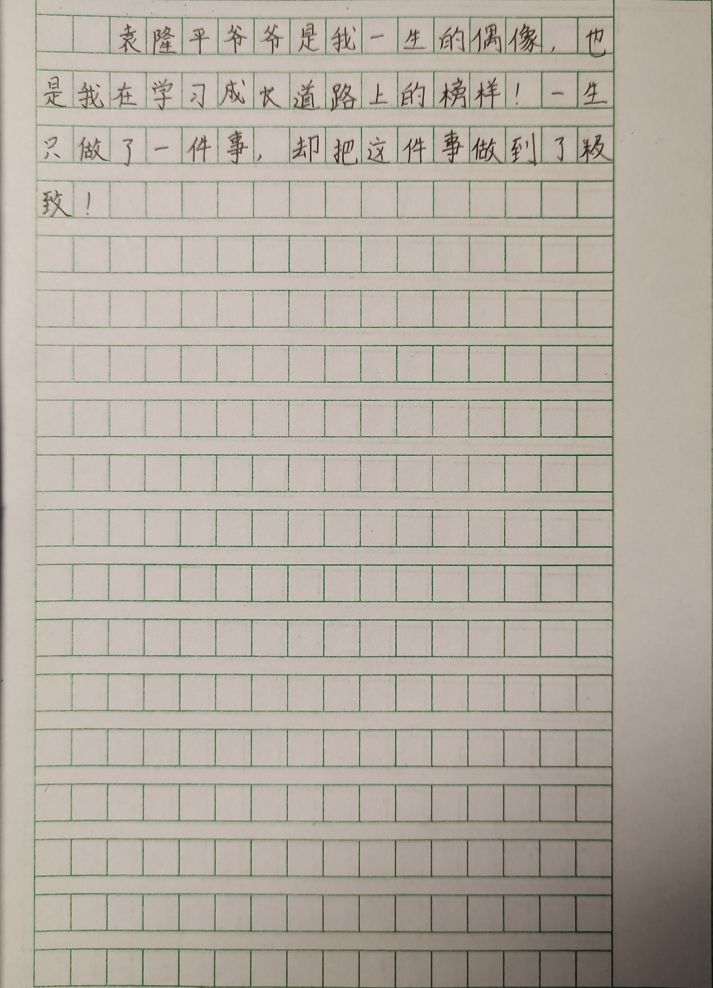 袁隆平爷爷是我一生的偶像，也
是我在学习成长道路上的榜样！一生
只做了一件事，却把这件事做到了极
致！